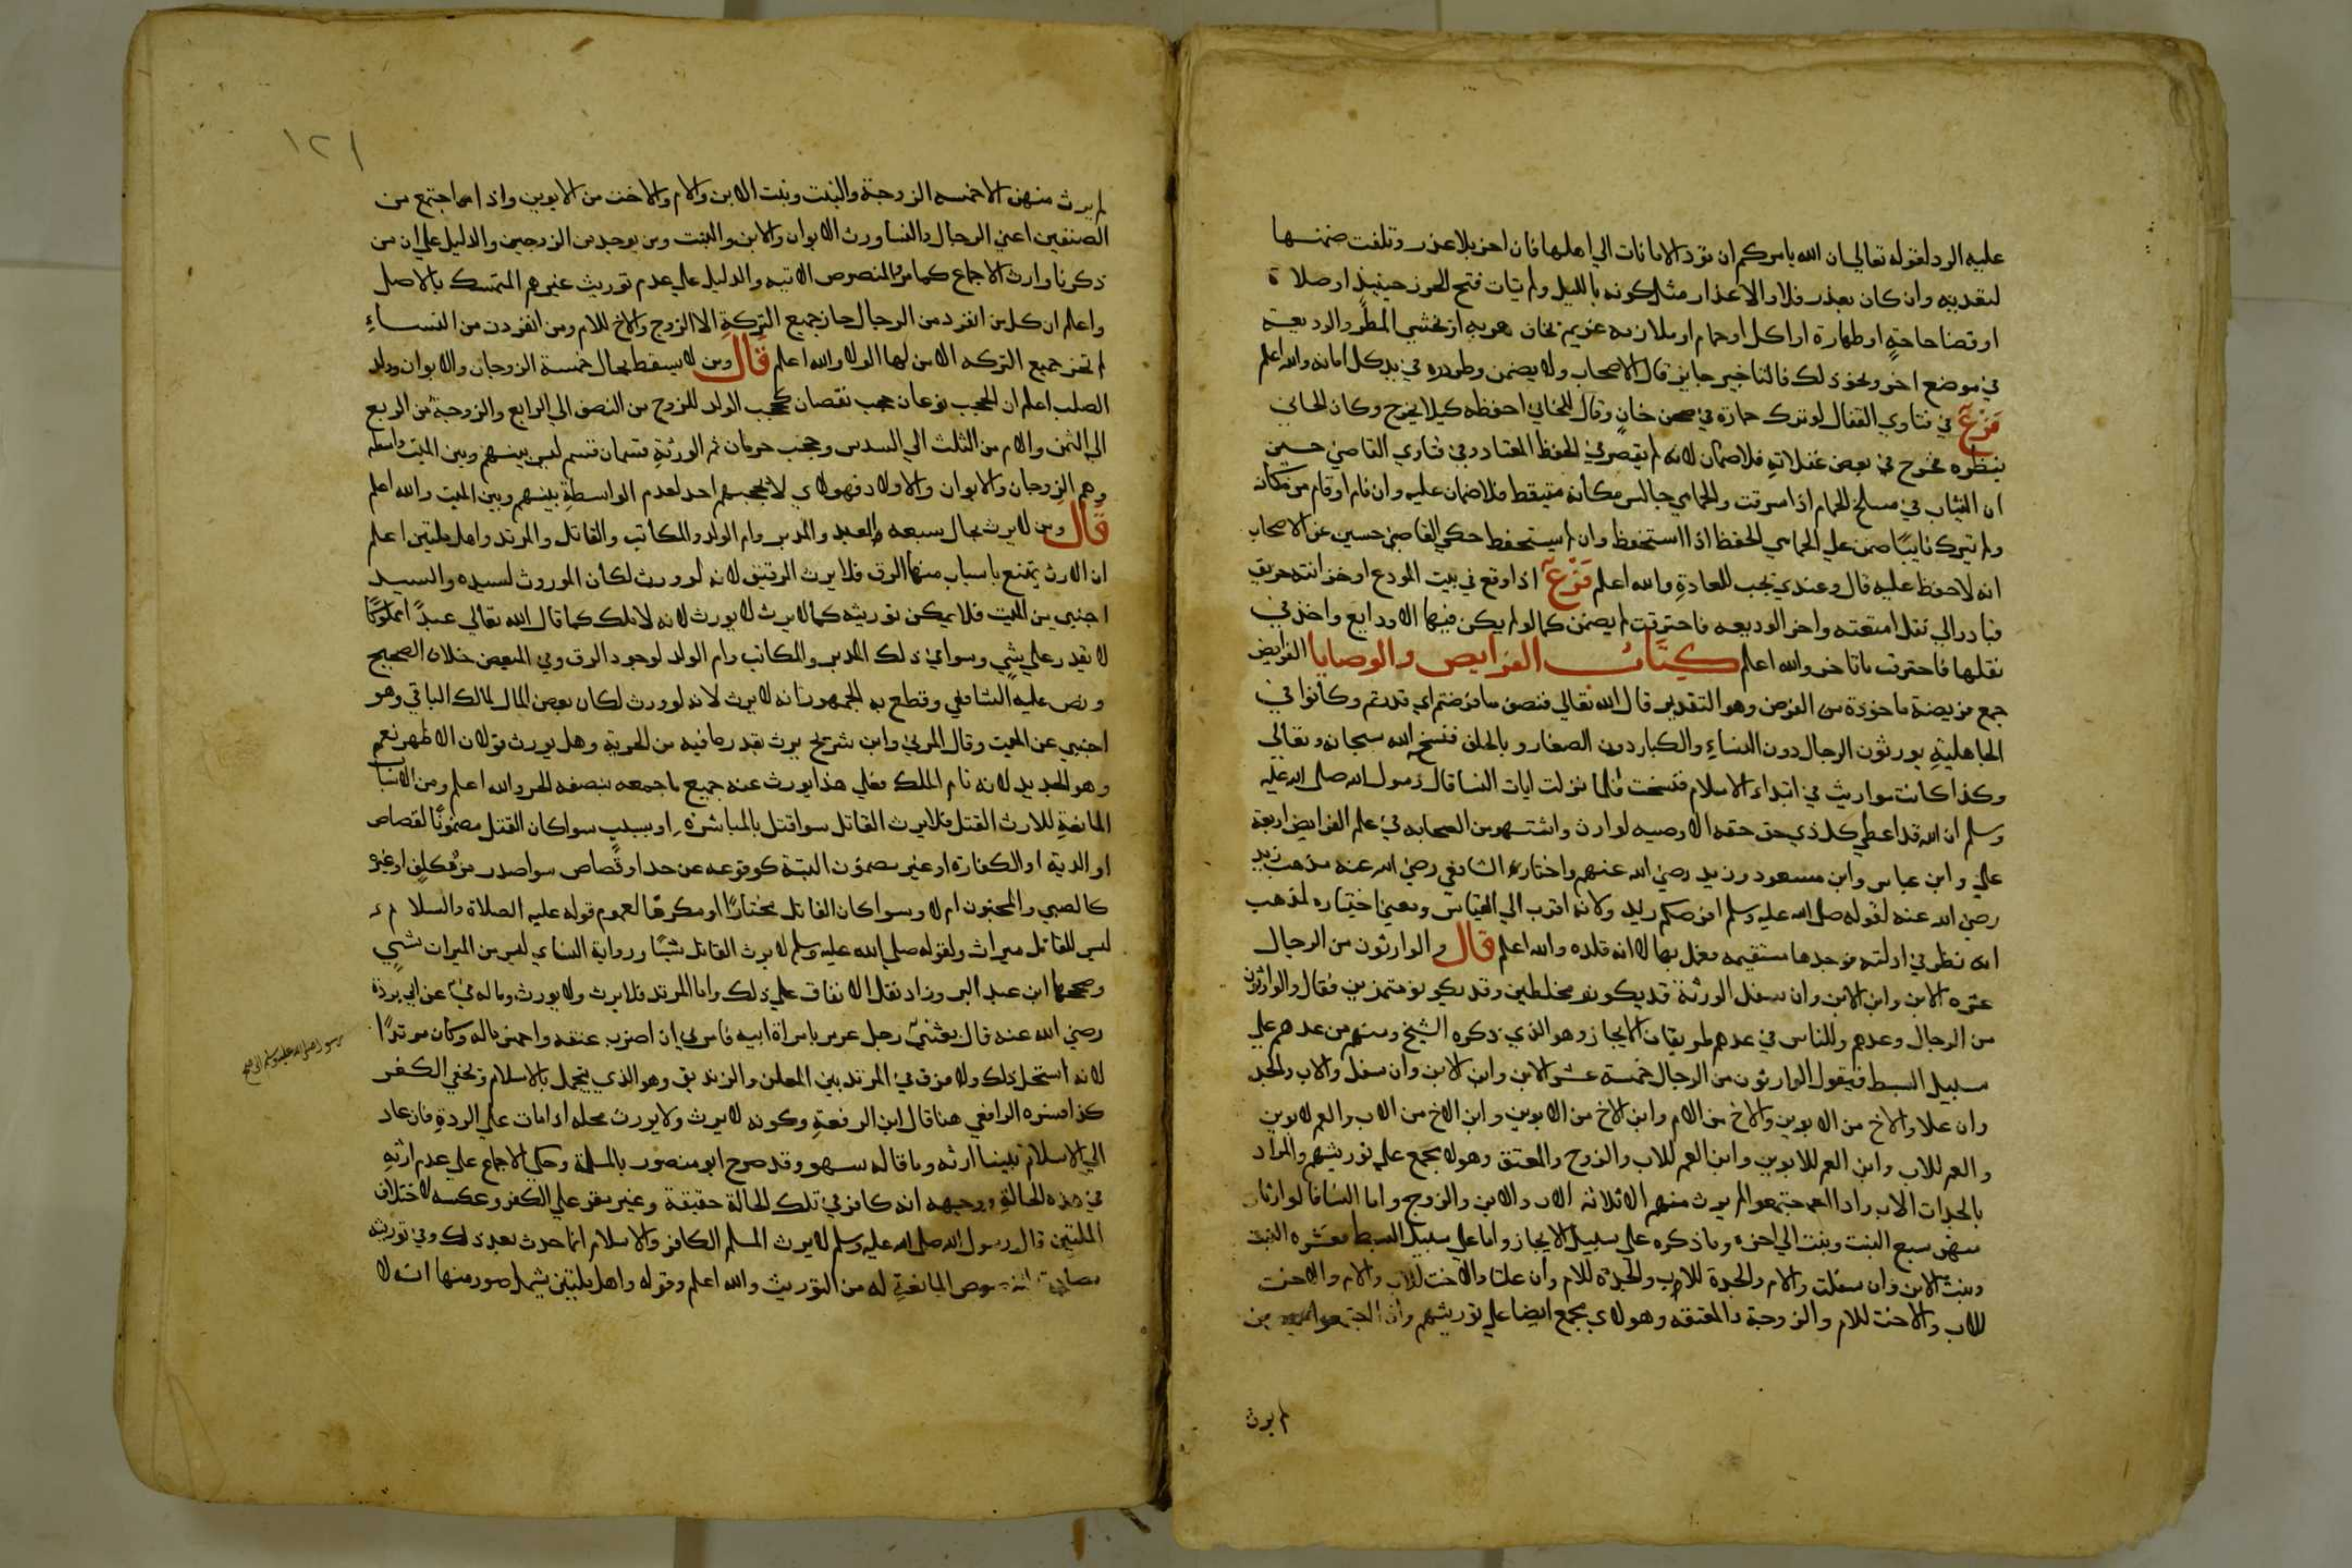 عليه الرد لقوله تعالى ان الله يامركم ان تؤدوا الامانات الي اهلها فان اخر بلا عذر وتلفت ضمنها
لتعديه وان كان بعذر فلا والاعذار مثل كونه بالليل ولم يتات فتح الحرز حينيذ او صلاة
او قضا حاجة او طهارة او اكل او حمام او ملازمة غريم يخاف هربه او يخشي المطر والوديعة
في موضع اخر ونحو ذلك فالتاخير جايز قال الاصحاب ولا يضمن وطردوه في يد كل امانه والله اعلم
فرع في فتاوي القفال لو ترك حماره في صحن خان وقال للخاني احفظه كيلا يخرج وكان الخاني
ينظره فخرج في بعض غفلاته فلا ضمان لانه لم يقصر في الحفظ المعتاد وفي فتاوي القاضي حسين
ان الثياب في مسلخ الحمام اذا سرقت والحمامي جالس مكانه متيقظ فلا ضمان عليه وان نام او قام من مكانه
ولم يترك نايبا ضمن علي الحمامي الحفظ اذا استحفظ وان لم يستحفظ حكي القاضي حسين عن الاصحاب
انه لا حفظ عليه قال وعندي تجب للعادة والله اعلم فرع اذا وقع في بيت المودع او خزانته حريق
فبادر الي نقل امتعته واخر الوديعه فاحترقت لم يضمن كما لو لم يكن فيها الا ودايع واخذ في
نقلها فاحترقت ما تاخر والله اعلم كتاب الفرايض والوصايا الفرايض
جمع فريضة ماخوذة من الفرض وهو التقدير قال الله تعالي فنصف ما فرضتم اي قدرتم وكانوا في
الجاهلية يورثون الرجال دون النساء والكبار دون الصغار وبالحلف فنسخ الله سبحانه وتعالي
وكذا كانت مواريث في ابتداء الاسلام فنسخت فلما نزلت ايات النسا قال رسول الله صلى الله عليه
وسلم ان الله قد اعطي كل ذي حق حقه الا لا وصيه لوارث واشتهر من الصحابه في علم الفرايض اربعة
علي وابن عباس وابن مسعود وزيد رضي الله عنهم واختار الشافعي رضي الله عنه مذهب زيد
رضي الله عنه لقوله صلى الله عليه وسلم افرضكم زيد ولانه اقرب الي القياس ومعني اختياره لمذهب
انه نظر في ادلته فوجدها مستقيمه فعمل بها لا انه قلده والله اعلم قال والوارثون من الرجال
عشره الابن وابن الابن وان سفل الورثة قد يكونو مختلطين وقد يكونو متميزين فقال والوارثون
من الرجال وعدهم وللناس في عدهم طريقان الايجاز وهو الذي ذكره الشيخ ومنهم من عدهم علي
سبيل البسط فيقول الوارثون من الرجال خمسة عشر الابن وابن الابن وان سفل والاب والجد
وان علا والاخ من الابوين والاخ من الام وابن الاخ من الابوين وابن الاخ من الاب والعم لابوين
والعم للاب وابن العم للابوين وابن العم للاب والزوج والمعتق وهولا مجمع علي توريثهم والمراد
بالجد اب الاب واذا اجتمعوا لم يرث منهم الا ثلاثة الاب والابن والزوج واما النسا فالوارثات
منهن سبع البنت وبنت الي اخره وما ذكره علي سبيل الايجاز واما علي سبيل البسط فعشره البنت
وبنت الابن وان سفلت والام والجدة للاب والجدة للام وان علتا والاخت للاب والام والاخت
للاب والاخت للام والزوجة والمعتقه وهولاي مجمع ايضا علي توريثهم وان اجتمعوا من
لم يرث
١٢١
لم يرث منهن الا خمسه الزوجة والبنت وبنت الابن والام والاخت من الابوين واذا ما اجتمع من
الصنفين اعني الرجال والنسا ورث الابوان والابن والبنت ومن يوجد من الزوجين والدليل علي ان من
ذكرنا وارث الاجماع كما مر والنصوص الاتيه والدليل علي عدم توريث غيرهم التمسك بالاصل
واعلم ان كل من انفرد من الرجال حاز جميع التركة الا الزوج والاخ للام ومن انفردت من النساء
لم تحز جميع التركه الا من لها الولا والله اعلم قال ومن لا يسقط بحال خمسة الزوجان والابوان وولد
الصلب اعلم ان الحجب نوعان حجب نقصان كحجب الولد للزوج من النصف الي الرابع والزوجة من الربع
الي الثمن والام من الثلث الي السدس وحجب حرمان ثم الورثة قسمان قسم ليس بينهم وبين الميت واسطه
وهم الزوجان والابوان والاولاد فهولاي لا يحجبهم احد لعدم الواسطة بينهم وبين الميت والله اعلم
قال ومن لا يرث بحال سبعه العبد والمدبر وام الولد والمكاتب والقاتل والمرتد واهل ملتين اعلم
ان الارث يمتنع باسباب منها الرق فلا يرث الرقيق لانه لو ورث لكان الموروث لسيده والسيد
اجنبي من الميت فلا يمكن توريثه كما لا يرث لا يورث لانه لا ملك كما قال الله تعالي عبدا مملوكا
لا يقدر علي شي وسواء في ذلك المدبر والمكاتب وام الولد لوجود الرق وفي المبعض خلاف الصحيح
ونص عليه الشافعي وقطع به الجمهور انه لا يرث لانه لو ورث لكان بعض المال لمالك الباقي وهو
اجنبي عن الميت وقال المزني وابن شريح يرث بقدر ما فيه من الحرية وهل يورث قولان الاظهر نعم
وهو الجديد لانه تام الملك فعلي هذا يورث عنه جميع ما جمعه بنصفه الحر والله اعلم ومن الاسباب
المانعة للارث القتل فلا يرث القاتل سوا قتل بالمباشرة او بسبب سوا كان القتل مضمونا لقصاص
او الدية او الكفارة او غير مضمون البتة كوقوعه عن حد او قصاص سوا صدر من مكلف او غيره
كالصبي والمجنون ام لا وسوا كان القاتل مختارا او مكرها لعموم قوله عليه الصلاة والسلام
ليس للقاتل ميراث ولقوله صلى الله عليه وسلم لا يرث القاتل شيا ورواية النساي ليس من الميراث شي
وصححها ابن عبد البر وزاد نقل الاتفاق علي ذلك واما المرتد فلا يرث ولا يورث وماله في عن ابي بردة
رضي الله عنه قال بعثني رجل عرس بامراة ابيه فامرني ان اضرب عنقه واخمس ماله وكان مرتدا
رسول الله صلى الله عليه وسلم الي صح
لانه استحل ذلك ولا فرق في المرتد بين المعلن والزنديق وهو الذي يتجمل بالاسلام ويخفي الكفر
كذا فسره الرافعي هنا قال ابن الرفعة وكونه لا يرث ولا يورث محله اذا مات علي الردة فان عاد
الي الاسلام تبينا ارثه وما قاله سهو وقد صرح ابو منصور بالمسلة وحكي الاجماع علي عدم ارثه
في هذه الحالة ووجهه انه كافر في تلك الحالة حقيقة وغير مقر علي الكفر وعكسه لاختلاف
الملتين قال رسول الله صلى الله عليه وسلم لا يرث المسلم الكافر والاسلام انما حدث بعد ذلك وفي توريثه
النصوص المانعة له من التوريث والله اعلم وقوله واهل ملتين يشمل صور منها انه لا